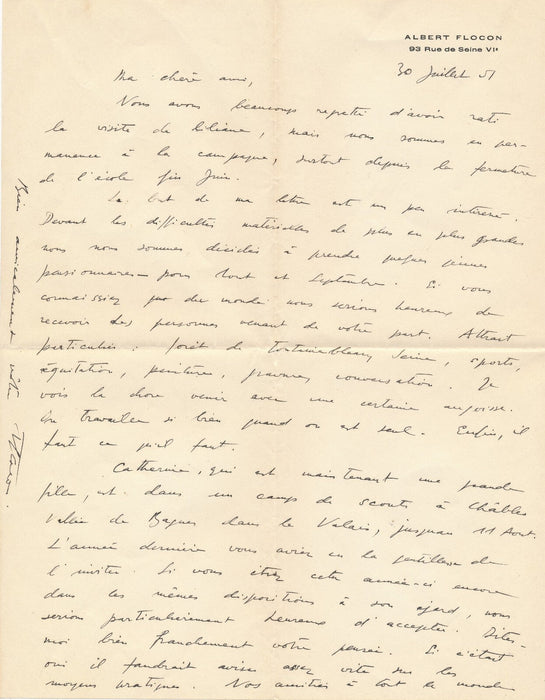 ALBERT FLOCON
93 Rue de Seine VIe
30 Juillet 51
Ma chère amie,
Nous avons beaucoup regretté d'avoir raté
la visite de Liliane, mais nous sommes en per-
manence à la campagne, surtout depuis la fermeture
de l'école fin Juin.
Le but de ma lettre est un peu intéressé.
Devant les difficultés matérielles de plus en plus grandes
nous nous sommes décidés à prendre quelques jeunes
pensionnaires pour Aout et Septembre. Si vous
connaissiez du monde nous serions heureux de
recevoir des personnes venant de votre part. Attrait
particulier : forêt de Fontainebleau, Seine, sports,
équitation, peinture, gravure, conversation. Je
vois la chose venir avec une certaine angoisse.
On travaille si bien quand on est seul. Enfin, il
faut ce qu'il faut.
Catherine, qui est maintenant une grande
fille, est dans un camp de scouts à Châbles
Valée de Bagnes dans le Valais, jusquau 11 Aout.
L'année dernière vous aviez eu la gentillesse de
l'inviter. Si vous étiez cette année-ci encore
dans les mêmes dispositions à son égard, nous
serions particulièrement heureux d'accepter. Dites-
moi bien franchement votre pensée. Si c'était
oui il faudrait aviser assez vite sur les
moyens pratiques. Nos amitiés à tout le monde
Bien amicalement vôtre Flocon.